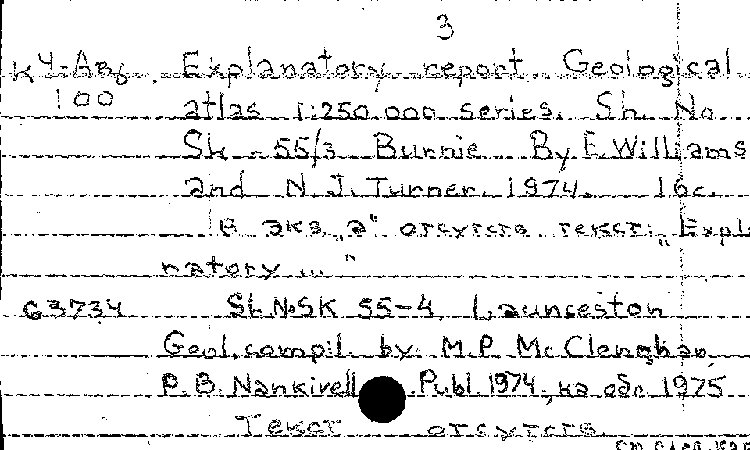 3
К4-Авб Explanatory report. Geological
100 atlas 1:250.000 series. Sh. No
SK - 55/3 Burnie. By E. Williams
and N. J. Turner. 1974. 16c.
В экз. „а“ отсутств. текст: „Expla-
natory ... “
G3734 Sh. No SK 55-4 Launceston
Geol. compil. by: M.P. Mc Clenghan,
P.B. Nankivell Publ. 1974, на обл. 1975
Текст отсутств.